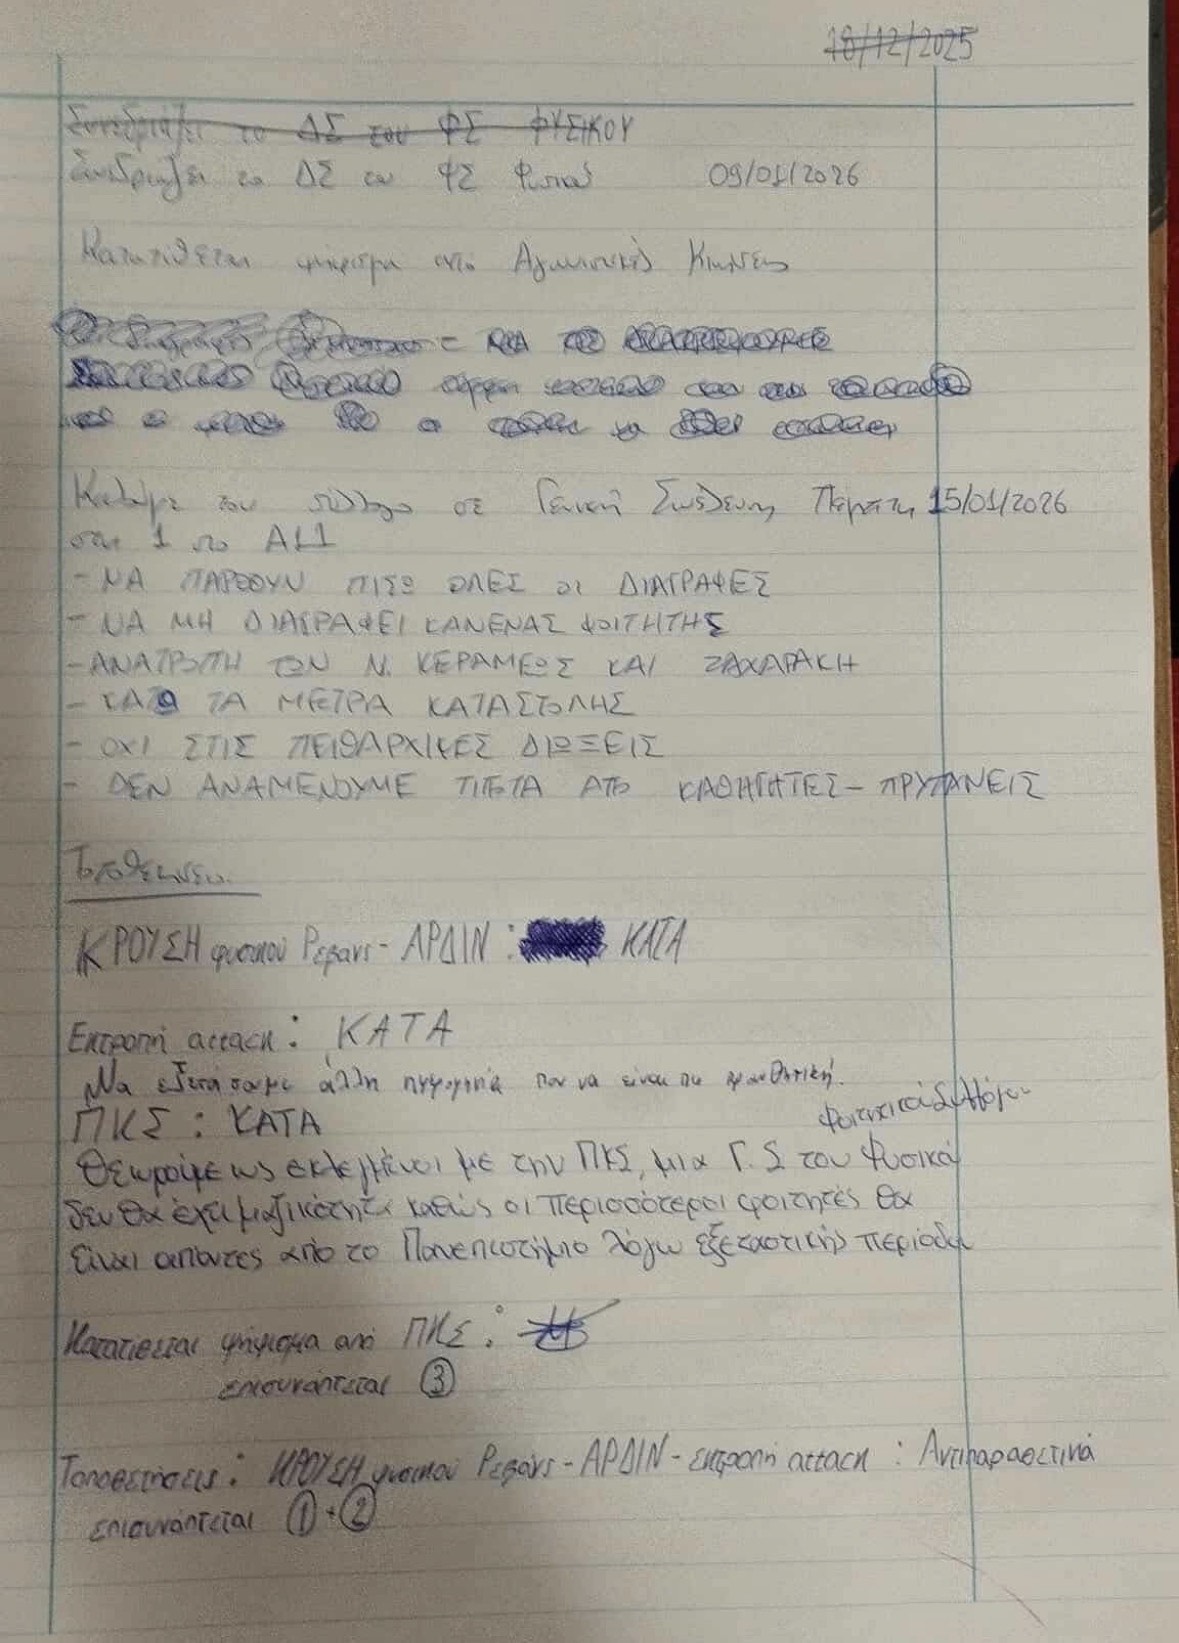 18/12/2025
Συνεδριάζει το ΔΣ του ΦΣ ΦΥΣΙΚΟΥ
Συνεδριάζει το ΔΣ του ΦΣ Φυσικού 09/01/2026
Κατατίθεται ψήφισμα από Αγωνιστικές Κινήσεις
Καλούμε τον σύλλογο σε Γενική Συνέλευση Πέμπτη 15/01/2026
στη 1 στο Α11
- ΝΑ ΠΑΡΘΟΥΝ ΠΙΣΩ ΟΛΕΣ οι ΔΙΑΓΡΑΦΕΣ
- ΝΑ ΜΗ ΔΙΑΓΡΑΦΕΙ ΚΑΝΕΝΑΣ ΦΟΙΤΗΤΗΣ
- ΑΝΑΤΡΟΠΗ ΤΩΝ Ν. ΚΕΡΑΜΕΩΣ ΚΑΙ ΖΑΧΑΡΑΚΗ
- ΚΑΤΩ ΤΑ ΜΕΤΡΑ ΚΑΤΑΣΤΟΛΗΣ
- ΟΧΙ ΣΤΙΣ ΠΕΙΘΑΡΧΙΚΕΣ ΔΙΩΞΕΙΣ
- ΔΕΝ ΑΝΑΜΕΝΟΥΜΕ ΤΙΠΟΤΑ ΑΠΟ ΚΑΘΗΓΗΤΕΣ - ΠΡΥΤΑΝΕΙΣ
Τοποθετήσεις
ΚΡΟΥΣΗ φυσικού Ρεβάνς - ΑΡΔΙΝ : ΚΑΤΑ
Εκτροπή attack : ΚΑΤΑ
Να εξετάσουμε άλλη ημερομηνία που να είναι πιο
ΠΚΣ : ΚΑΤΑ Φοιτητικού Συλλόγου
Θεωρούμε ως εκλεγμένοι με την ΠΚΣ, μια Γ.Σ του Φυσικού
δεν θα έχει μαζικότητα καθώς οι περισσότεροι φοιτητές θα
είναι απόντες από το Πανεπιστήμιο λόγω εξεταστικής περιόδου
Κατατίθεται ψήφισμα από ΠΚΣ :
επισυνάπτεται ③
Τοποθετήσεις : ΚΡΟΥΣΗ φυσικού Ρεβάνς - ΑΡΔΙΝ - εκτροπή attack : Αντιπαραθετικά
επισυνάπτεται ① + ②